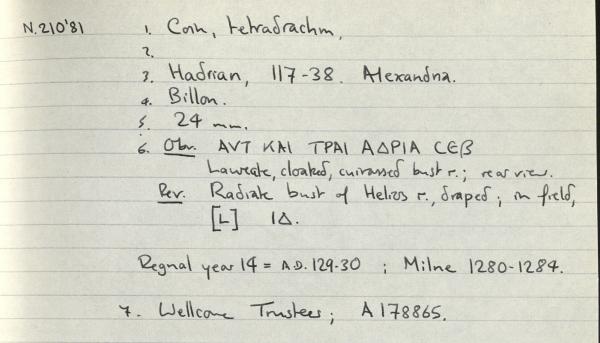 N.210'81
1. Coin, tetradrachm.
2.
3. Hadrian, 117-38. Alexandria.
4. Billon.
5. 24 mm.
6. Obv. ΑVΤ ΚΑΙ ΤΡΑΙ ΑΔΡΙΑ CΕΒ
Laureate, cloaked, cuirassed bust r.; rear view.
Rev. Radiate bust of Helios r., draped; in field,
[L] ΙΔ.
Regnal year 14 = A.D. 129-30 ; Milne 1280-1284.
7. Wellcome Trustees; A178865.